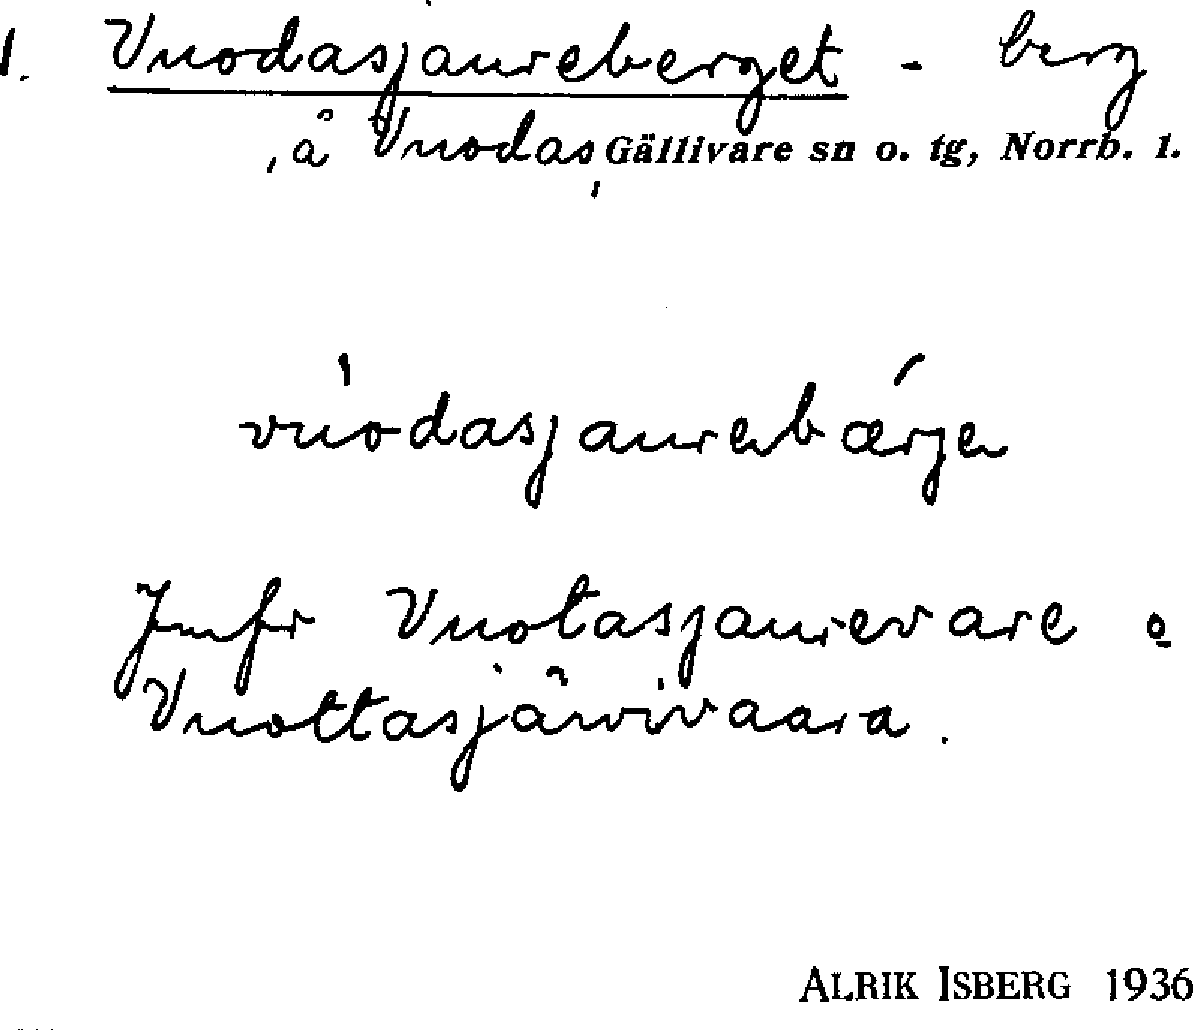 1. Vuodasjaureberget - berg
, å Vuodas, Gällivare sn o. tg, Norrb. l.
vuodasjaurebærje
Jmfr Vuotasjaurevare o
Vuottasjärvivaara.
ALRIK ISBERG 1936